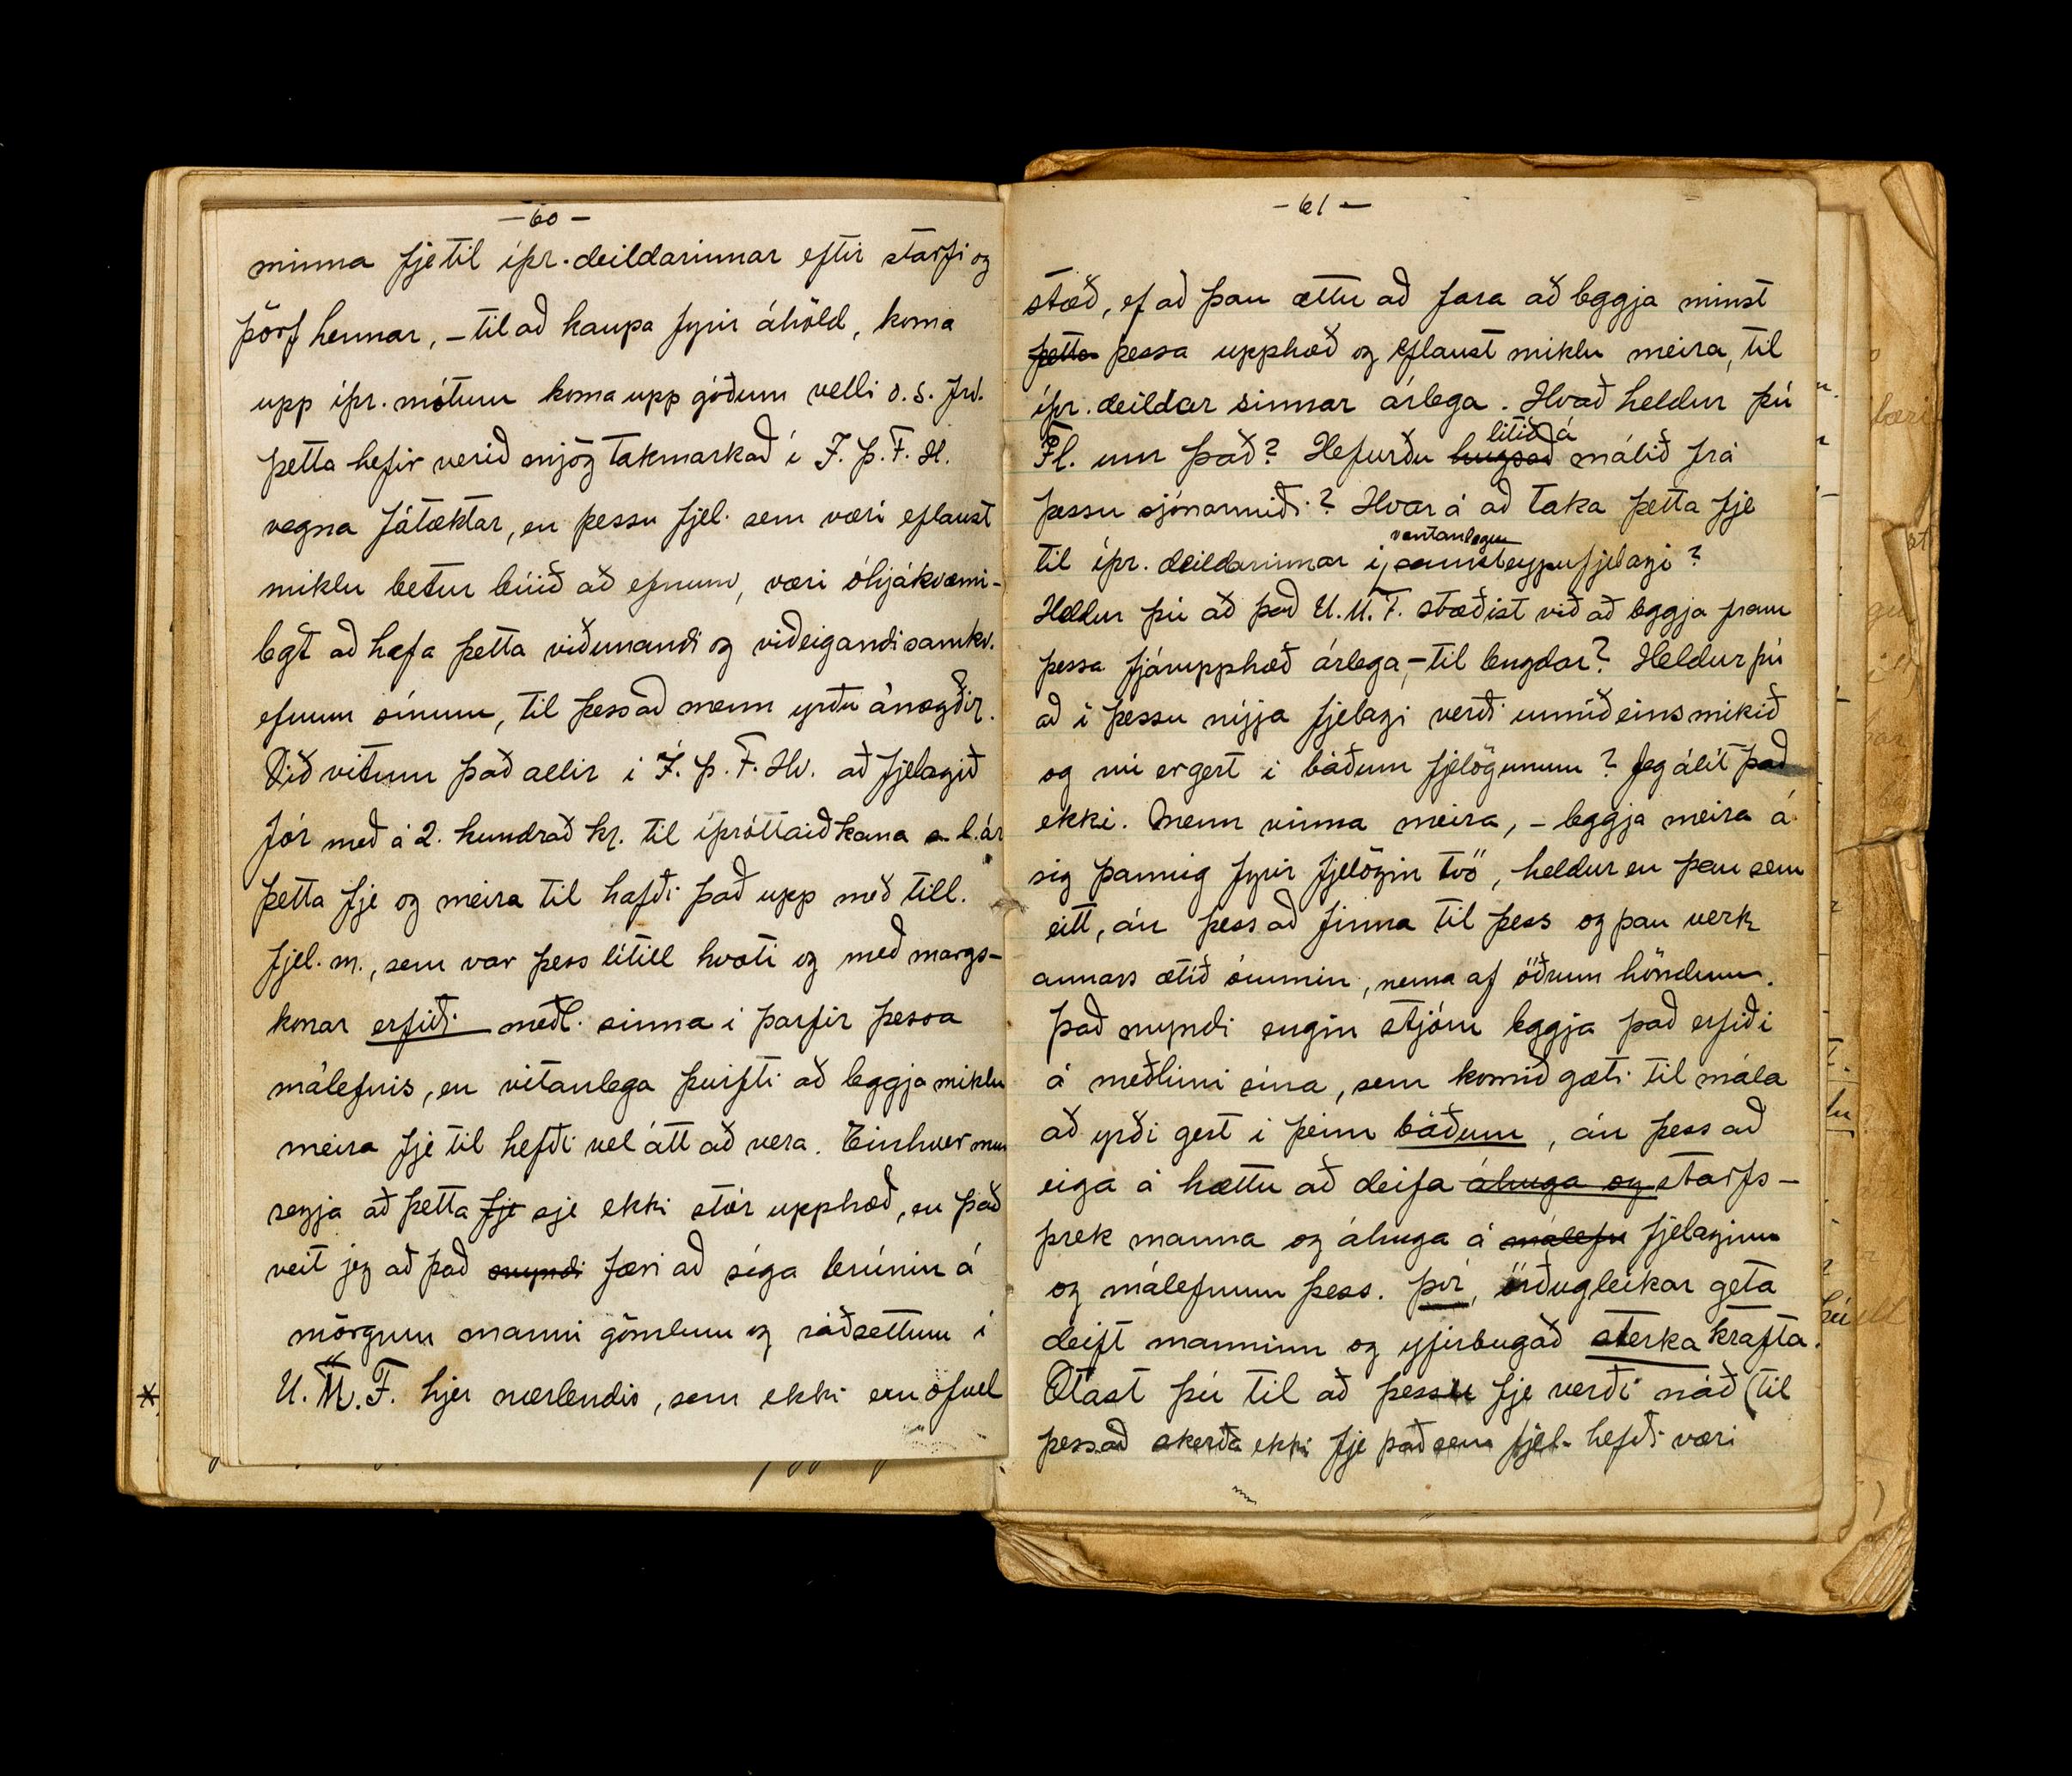 - 60 -
minna fje til íþr. deildarinnar eftir starfi og
þörf hennar, - til að kaupa fyrir áhöld, koma
upp íþr. mótum koma upp góðum velli o. s. frv.
Þetta hefir verið mjög takmarkað í Í. Þ. F. H.
vegna fátæktar, en þessu fjel. sem væri eflaust
miklu betur búið að efnum, væri óhjákvæmi-
legt að hafa þetta viðunandi og viðeigandi samkv.
efnum sínum, til þess að menn yrðu ánægðir.
Við vitum það allir í Í. Þ. F. Hv. að fjelagið
fór með á 2. hundrað kr. til íþróttaiðkana s. l. ár
Þetta fje og meira til hafði það upp með till.
fjel. m., sem var þess lítill hvati og með margs-
konar erfiði meðl. sinna í þarfir þessa
málefnis, en vitanlega þurfti að leggja miklu
meira fje til hefði vel átt að vera. Einhver mun
segja að þetta fje sje ekki stór upphæð, en það
veit jeg að það myndi færi að síga brúnin á
mörgum manni gömlum og ráðsettum í
U. M. F. hjer nærlendis, sem ekki eru of vel
- 61 -
stæð, ef að þau ættu að fara að leggja minst
þetta þessa upphæð og eflaust miklu meira, til
íþr. deildar sinnar árlega. Hvað heldur þú
litið á
Fl. um það? Hefurðu hugsað málið frá
þessu sjónarmiði? Hvar á að taka þetta fje
væntanlegu
til íþr. deildarinnar í samsteypufjelagi?
Heldur þú að það U. M. F. stæðist við að leggja fram
þessa fjárupphæð árlega, - til lengdar? Heldur þú
að í þessu nýja fjelagi verði unnið eins mikið
og nú er gert í báðum fjelögunum? Jeg álít það
ekki. Menn vinna meira, - leggja meira á
sig þannig fyrir fjelögin tvö, heldur en þau sem
eitt, án þess að finna til þess og þau verk
annars ætíð óunnin, nema af öðrum höndum.
Það myndi engin stjórn leggja það erfiði
á meðlimi sína, sem komið gæti til mála
að yrði gert í þeim báðum, án þess að
eiga á hættu að deifa áhuga og starfs-
þrek manna og áhuga á málefn fjelaginu
og málefnum þess. Því, örðugleikar geta
deift manninn og yfirbugað sterka krafta.
Ætlast þú til að þessu fje verði náð (til
þess að skerða ekki fje það sem fjel. hefði væri